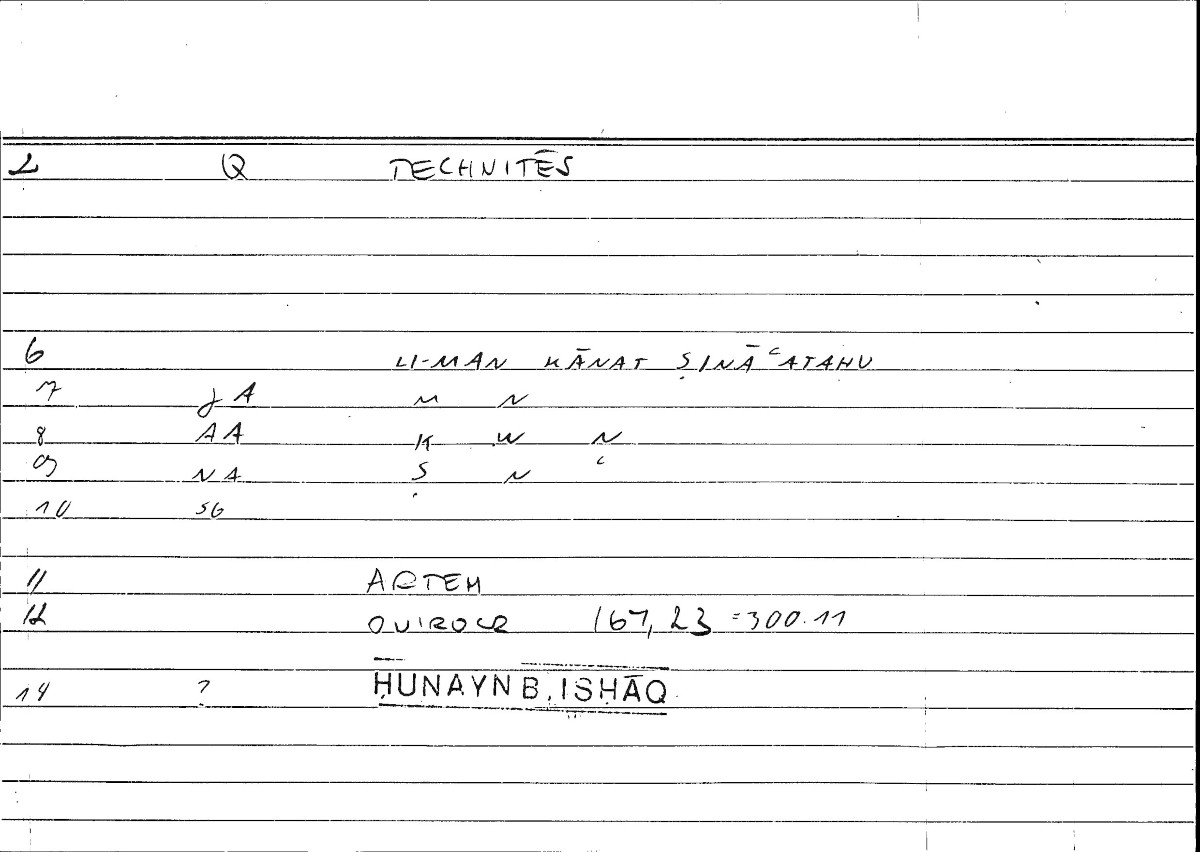 2 Q TECHNITĒS
6 LI-MAN KĀNAT ṢINĀʿATAHU
7 JA M N
8 AA K W N
9 NA Ṣ N ʿ
10 SG
11 ARTEM
12 OVIROCR 167,23 =300.11
14 ? ḤUNAYN B. ISḤĀQ